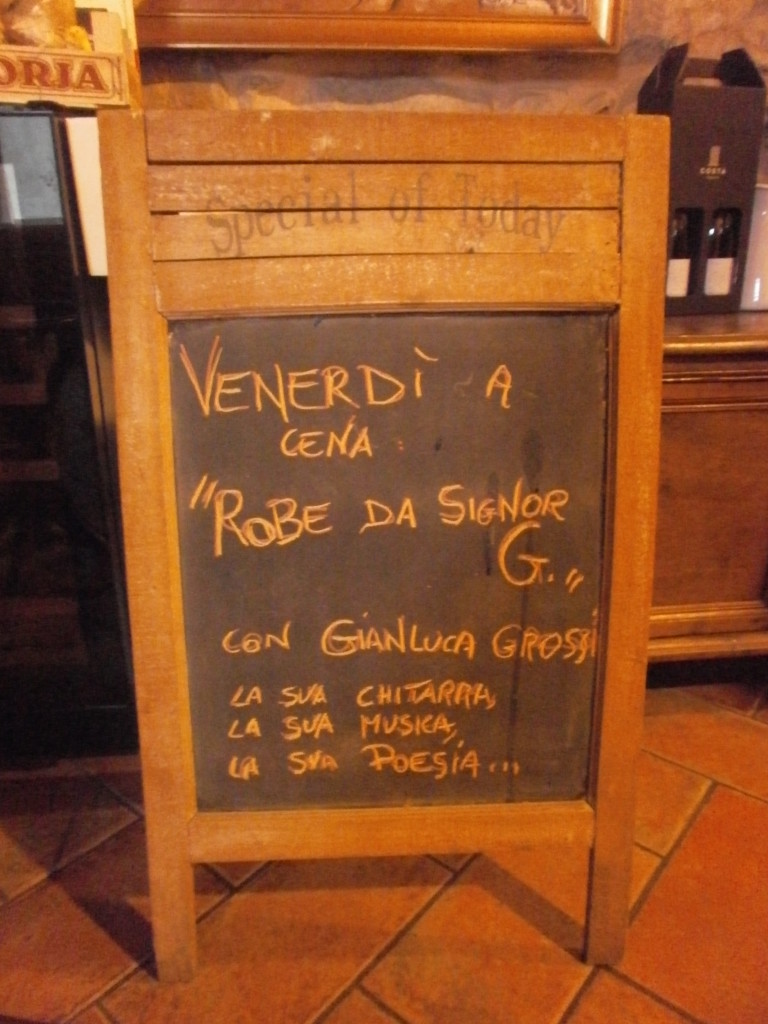 ORJA
COSTA
Special of Today
VENERDÌ A
CENA:
"ROBE DA SIGNOR
G."
CON GIANLUCA GROSSI
LA SUA CHITARRA,
LA SUA MUSICA,
LA SUA POESIA...